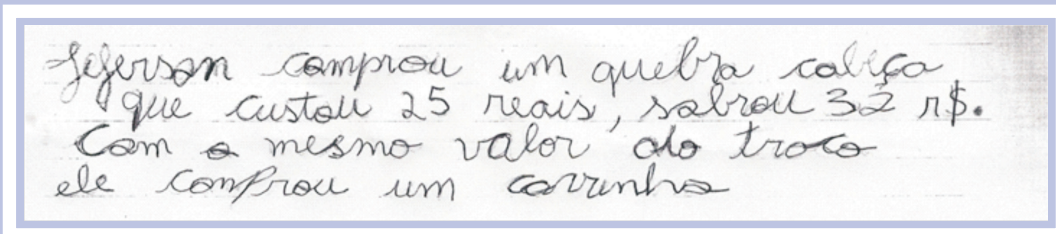 Jeferson comprou um quebra cabeça
que custou 25 reais, sobrou 32 r$.
Com o mesmo valor do troco
ele comprou um carrinho